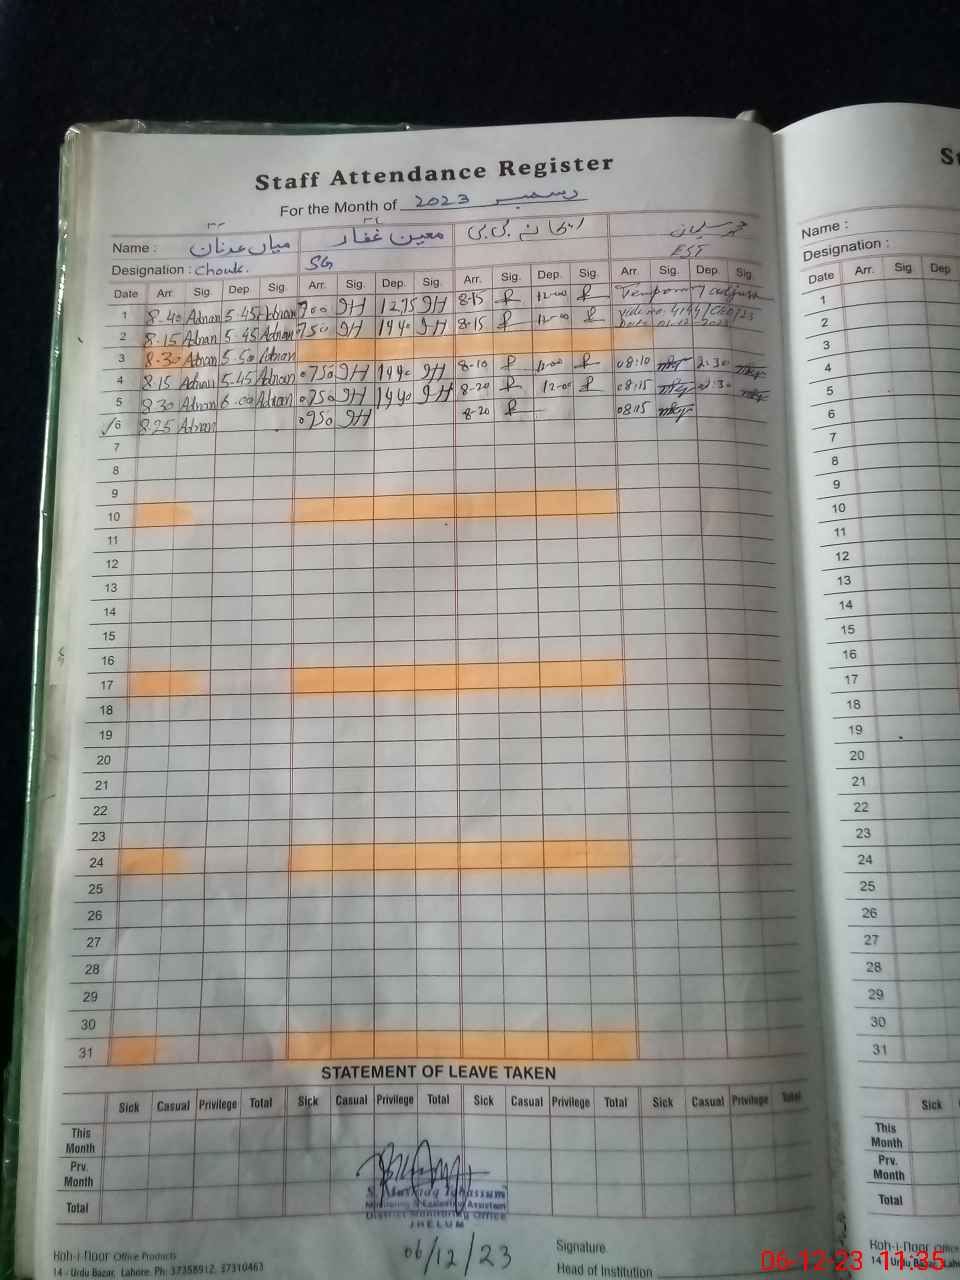 Staff Attendance Register
For the Month of دسمبر 2023
Name : میاں عدنان معین غفار
Designation : Chouk. SG EST
Date Arr. Sig. Dep. Sig. Arr. Sig. Dep. Sig. Arr. Sig. Dep. Sig. Arr. Sig. Dep. Sig.
1 8.40 Adnan 5.45 Adnan 700 1215 8-15 12-00 Temporary
2 8.15 Adnan 5.45 Adnan 750 1440 8-15 12-00
3 8.30 Adnan 5.50 Adnan
4 8.15 Adnan 5.45 Adnan 0750 1440 8-10 12-00 08:10 2:30
5 8.30 Adnan 6.00 Adnan 0750 1440 8-20 12-00 08:15 02:30
6 8.25 Adnan 0750 8-20 08:15
7
8
9
10
11
12
13
14
15
16
17
18
19
20
21
22
23
24
25
26
27
28
29
30
31
STATEMENT OF LEAVE TAKEN
Sick Casual Privilege Total Sick Casual Privilege Total Sick Casual Privilege Total Sick Casual Privilege Total
This Month
Prv. Month
Total
Monitoring & Evaluation Assistant
District Monitoring Office
JHELUM
06/12/23
Signature
Head of Institution
Koh-i-Noor Office Products
14 - Urdu Bazar, Lahore. Ph: 37358912, 37310463
St
Name :
Designation :
Date Arr. Sig Dep
1
2
3
4
5
6
7
8
9
10
11
12
13
14
15
16
17
18
19
20
21
22
23
24
25
26
27
28
29
30
31
Sick
This Month
Prv. Month
Total
Koh-i-Noor Office
14 - Urdu Bazar, Lah
06-12-23 11:35